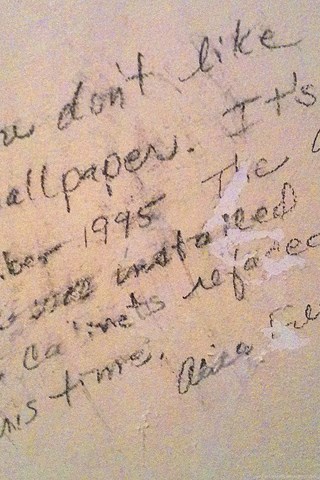 don't like
allpaper. It's
ber 1995 The
was installed
cabinets refaced
his time.